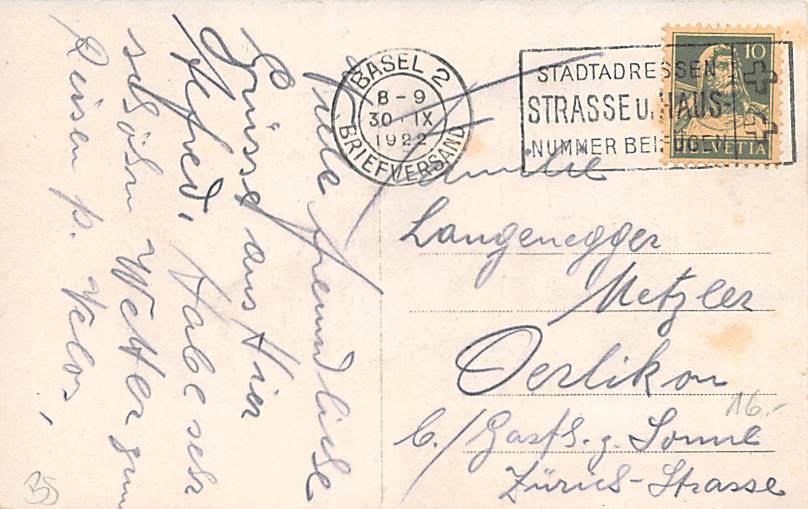 BASEL 2
8-9
30.IX
1922
BRIEFVERSAND
STADTADRESSEN
STRASSE u. HAUS-
NUMMER BEIFÜGEN
10
HELVETIA
Viele freundliche
Grüsse aus Hier
Alfred, Habe sehr
schöhn Wetter zum
Reisen p. Velos,
Familie
Langenegger
Metzler
Oerlikon
b./ Gasth. z. Sonne
Zürich-Strasse
16.-